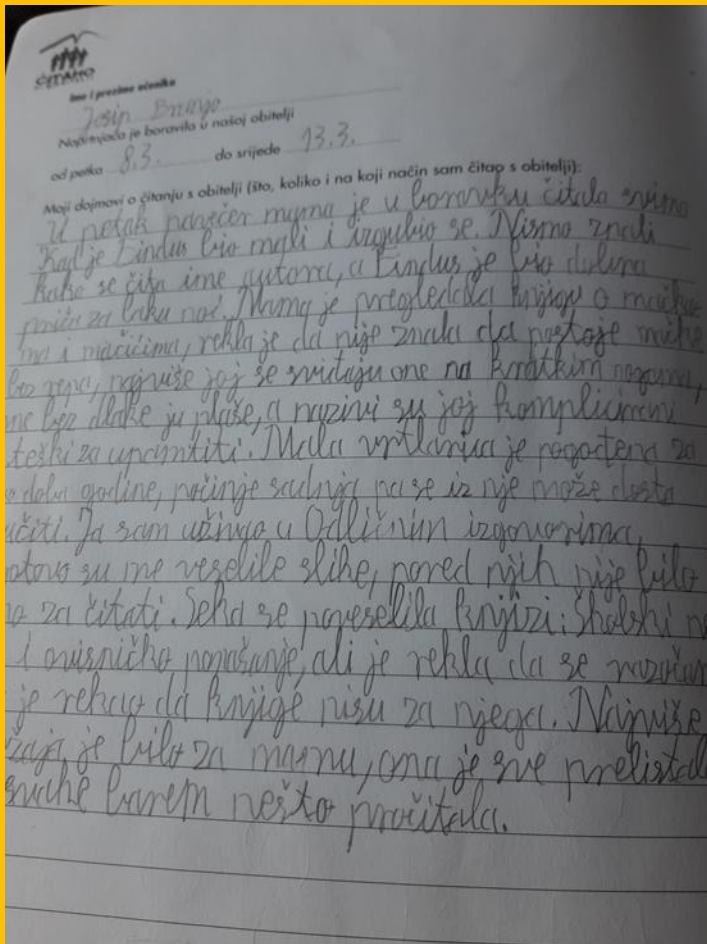 ČITAMO
Ime i prezime učenika
Josip Brunjo
Naprtnjača je boravila u našoj obitelji
od petka 8.3. do srijede 13.3.
Moji dojmovi o čitanju s obitelji (što, koliko i na koji način sam čitao s obitelji):
U petak navečer mama je u boravku čitala svima
Kad je Findus bio mali i izgubio se. Nismo znali
kako se čita ime autora, a Findus je bio dobra
priča za laku noć. Mama je pregledala knjigu o mačka
ma i mačićima, rekla je da nije znala da postoje mačke
bez repa, najviše joj se sviđaju one na kratkim nogama,
ne bez dlake ju plaše, a nazivi su joj komplicirani
teški za upamtiti. Mala vrtlarica je pogođena za
doba godine, počinje sadnja pa se iz nje može dosta
učiti. Ja sam uživao u Odličnim izgovorima,
su me veselile slike, pored njih nije bilo
za čitati. Seka se poveselila knjizi: Školski
i ponašanje, ali je rekla da se
je rekao da knjige nisu za njega. Najviše
je bilo za mamu, ona je sve prelistala
barem nešto pročitala.